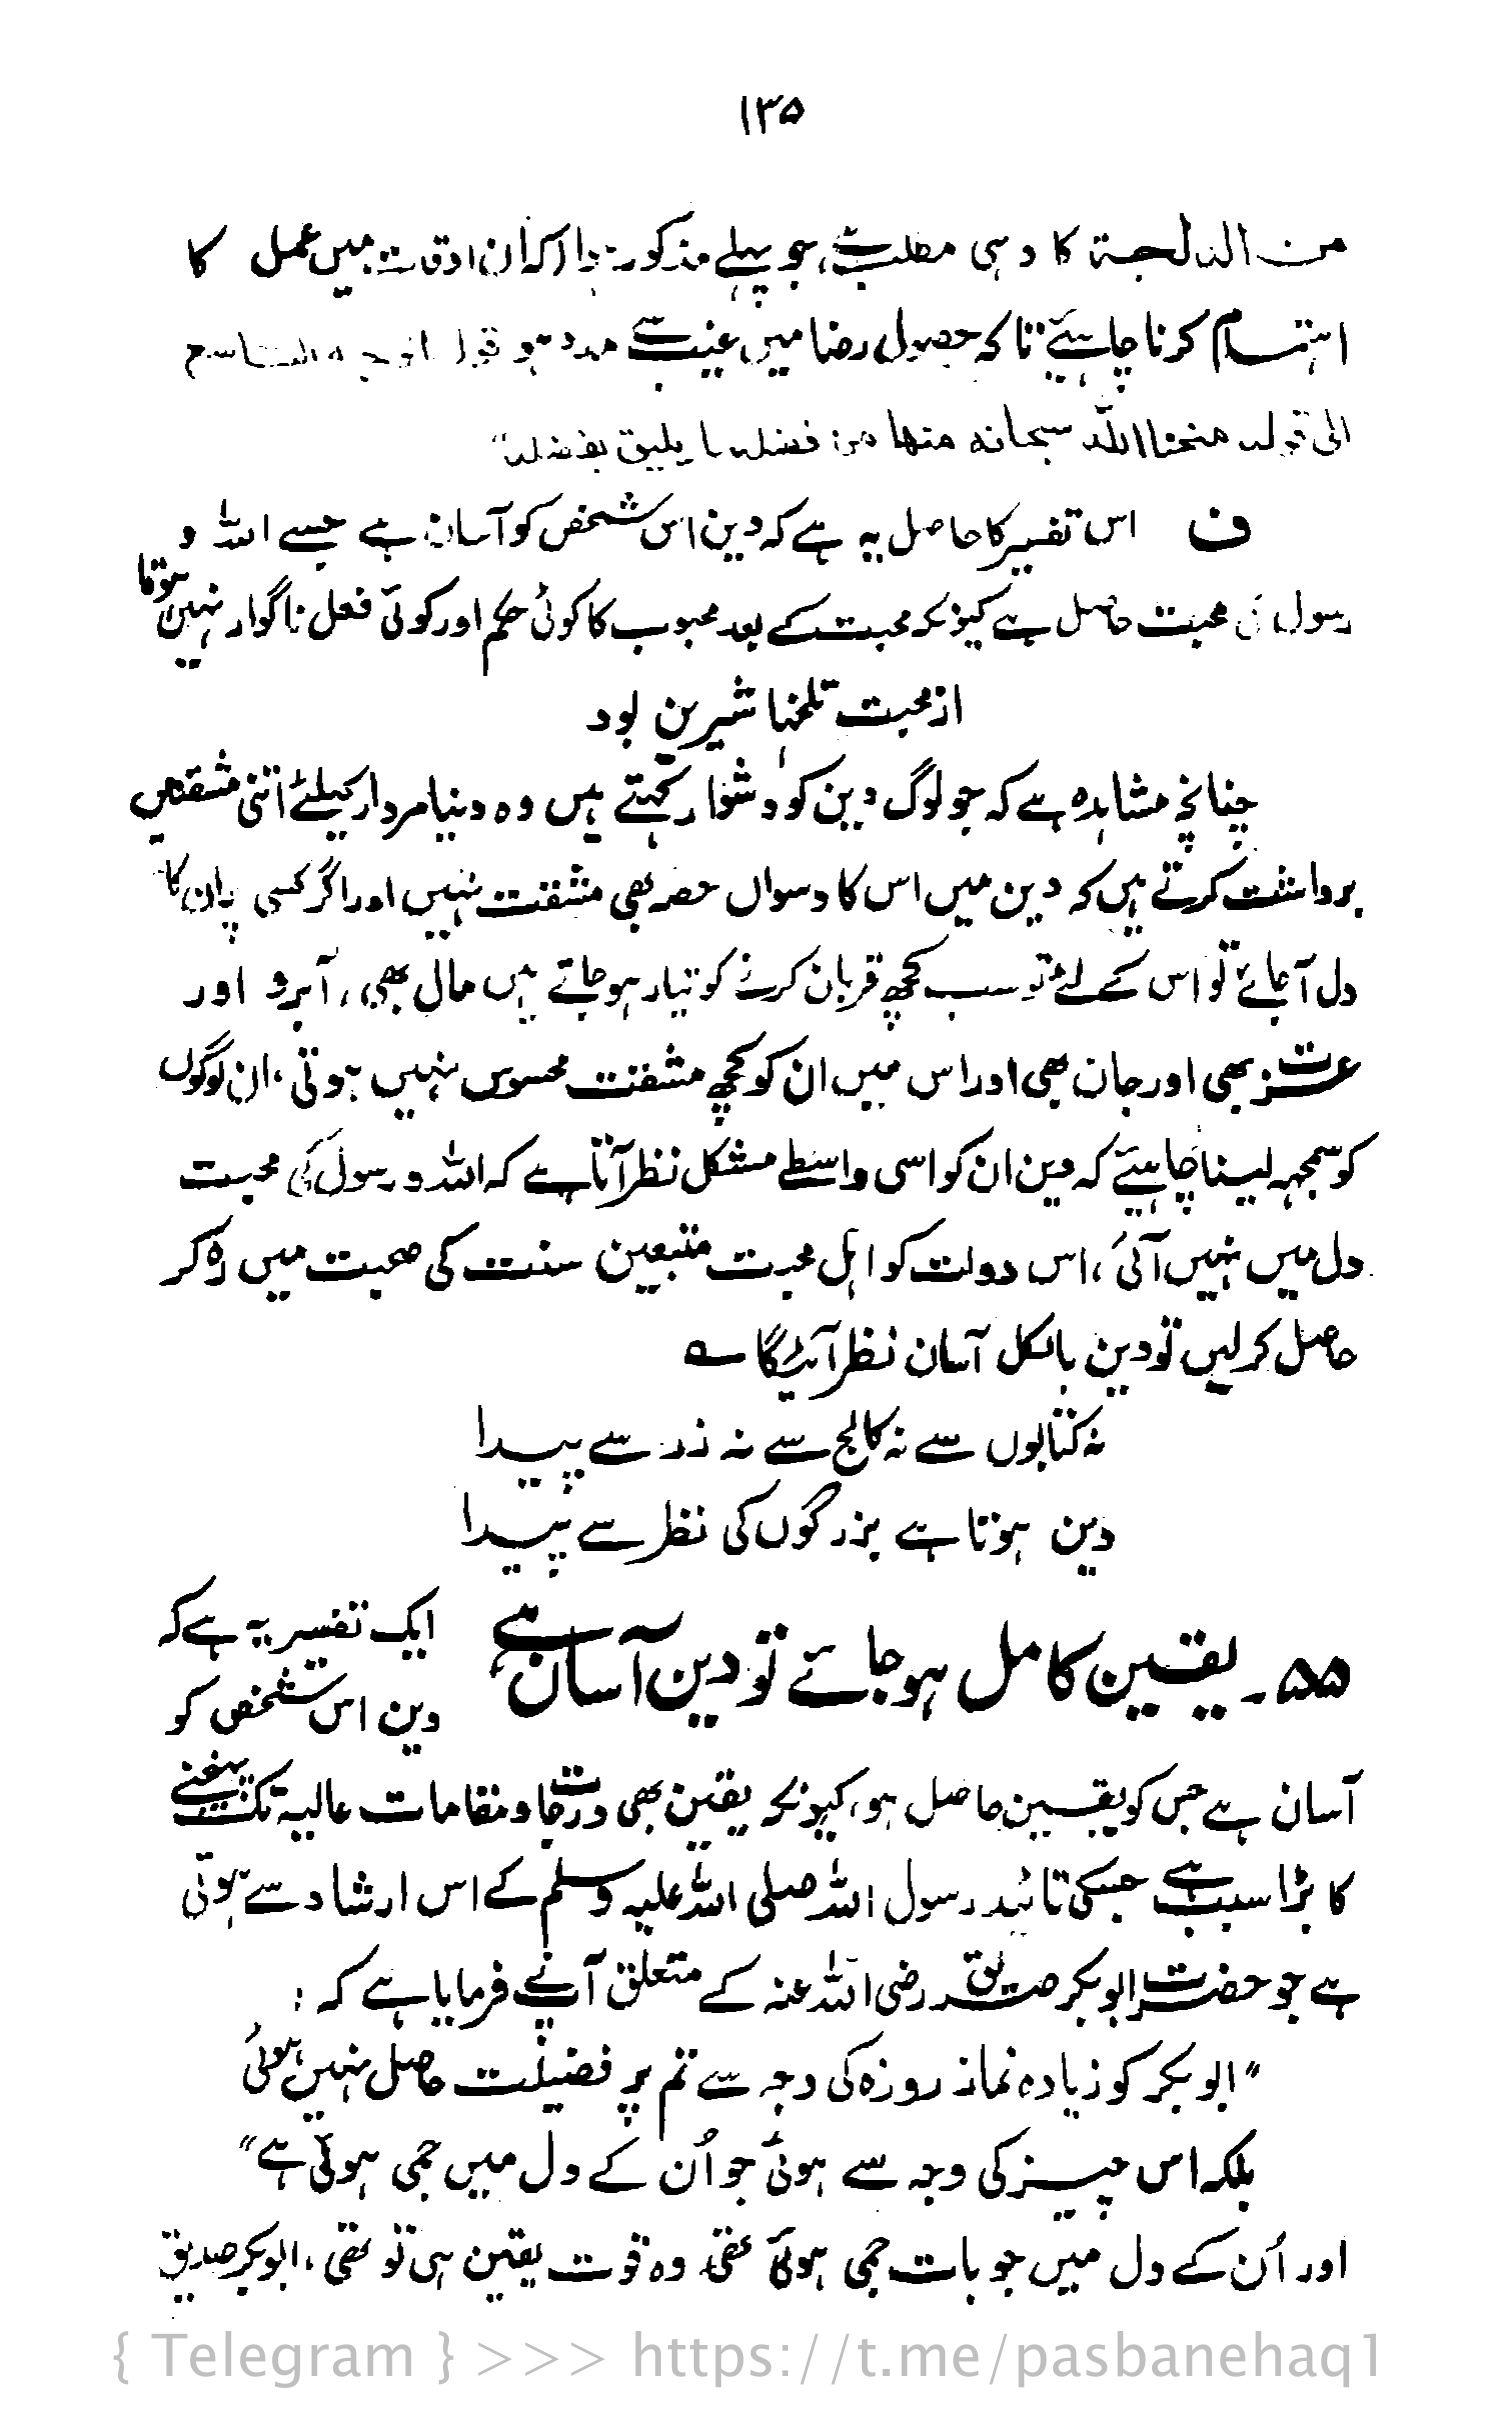 ۱۳۵
من الدلجة کا وہی مطلب ہے، جو پہلے مذکور ہوا کہ ان اوقات میں عمل کا
اہتمام کرنا چاہئے تاکہ حصول رضا میں غیب سے مدد ہو
الی قولہ منحنا اللہ سبحانہ منھا من فضلہ ما یلیق بفضلہ"
ف اس تفسیر کا حاصل یہ ہے کہ دین اس شخص کو آسان ہے جسے اللہ و
رسول کی محبت حاصل ہے کیونکہ محبت کے بعد محبوب کا کوئی حکم اور کوئی فعل ناگوار نہیں ہوتا
از محبت تلخہا شیریں بود
چنانچہ مشاہدہ ہے کہ جو لوگ دین کو دشوار کہتے ہیں وہ دنیا مردار کیلئے اتنی مشقتیں
برداشت کرتے ہیں کہ دین میں اس کا دسواں حصہ بھی مشقت نہیں اور اگر کسی پر ان کا
دل آجائے تو اس کے لئے تو سب کچھ قربان کرنے کو تیار ہوجاتے ہیں مال بھی، آبرو اور
عزت بھی اور جان بھی اور اس میں ان کو کچھ مشقت محسوس نہیں ہوتی، ان لوگوں
کو سمجھ لینا چاہیئے کہ دین ان کو اسی واسطے مشکل نظر آتا ہے کہ اللہ و رسول کی محبت
دل میں نہیں آئی، اس دولت کو اہل محبت متبعین سنت کی صحبت میں رہ کر
حاصل کرلیں تو دین بالکل آسان نظر آئیگا ؎
نہ کتابوں سے نہ کالج سے نہ زر سے پیدا
دین ہوتا ہے بزرگوں کی نظر سے پیدا
۵۵۔ یقین کامل ہوجائے تو دین آسان ہے،
ایک تفسیر یہ ہے کہ
دین اس شخص کو
آسان ہے جس کو یقین حاصل ہو، کیونکہ یقین بھی درجات و مقامات عالیہ تک پہنچنے
کا بڑا سبب ہے جسکی تائید رسول اللہ صلی اللہ علیہ وسلم کے اس ارشاد سے ہوتی
ہے جو حضرت ابوبکر صدیق رضی اللہ عنہ کے متعلق آپنے فرمایا ہے کہ :
"ابو بکر کو زیادہ نماز روزہ کی وجہ سے تم پر فضیلت حاصل نہیں ہوئی
بلکہ اس چیز کی وجہ سے ہوئی جو اُن کے دل میں جمی ہوئی ہے"
اور اُن کے دل میں جو بات جمی ہوئی تھی وہ قوت یقین ہی تو تھی، ابوبکر صدیق
{ Telegram } >>> https://t.me/pasbanehaq1